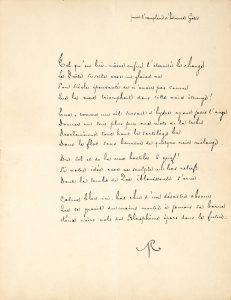 pour l'exemplaire d'Edmund Gosse
Tel qu'en lui-même enfin l'éternité le change,
Le Poëte suscite avec un glaive nu
Son siècle épouvanté de n'avoir pas connu
Que la mort triomphait dans cette voix étrange!
Eux, comme un vil sursaut d'hydre oyant jadis l'ange
Donner un sens plus pur aux mots de la tribu
Proclamèrent très haut le sortilège bu
Dans le flot sans honneur de quelque noir mélange.
Du sol et de la nue hostiles, ô grief!
Si notre idée avec ne sculpte un bas-relief
Dont la tombe de Poe éblouissante s'orne
Calme bloc ici-bas chu d'un désastre obscur
Que ce granit du moins montre à jamais sa borne
Aux noirs vols du Blasphème épars dans le futur.